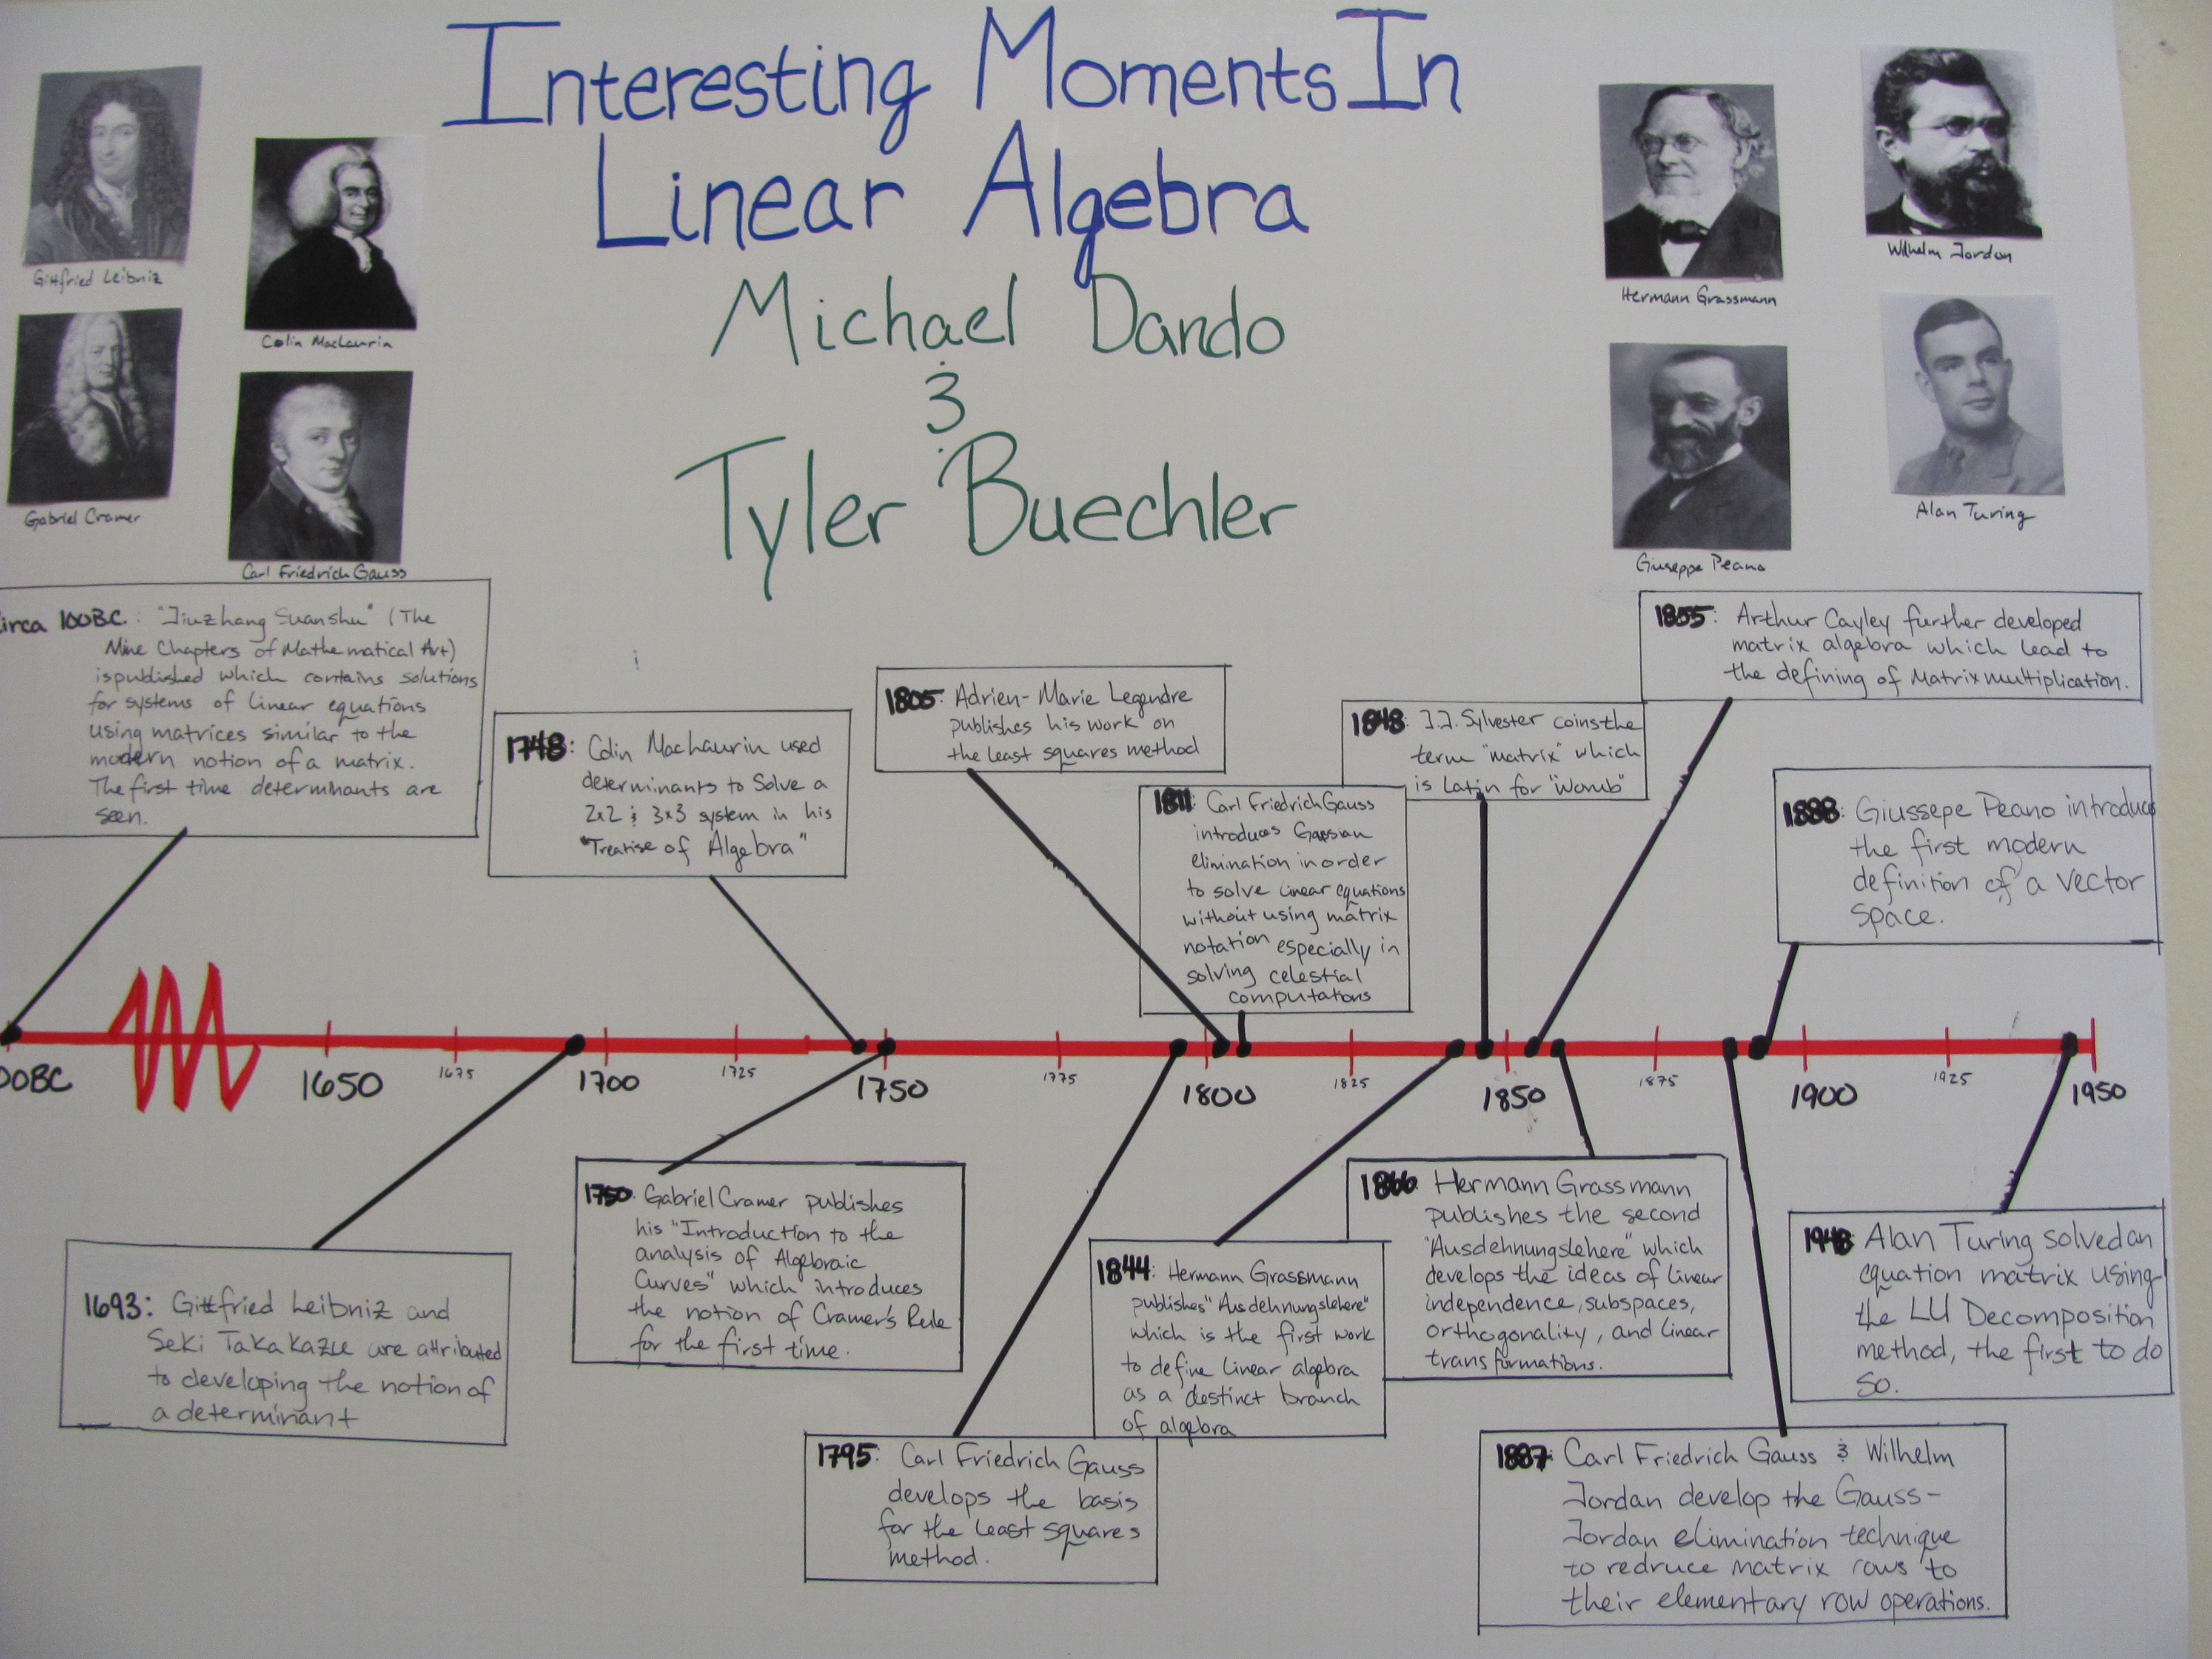 Interesting Moments In
Linear Algebra
Michael Dando
&
Tyler Buechler
Gittfried Leibniz
Colin MacLaurin
Gabriel Cramer
Carl Friedrich Gauss
Hermann Grassmann
Wilhelm Jordan
Giuseppe Peano
Alan Turing
irca 100BC: "Jiuzhang Suanshu" (The
Nine Chapters of Mathematical Art)
is published which contains solutions
for systems of linear equations
using matrices similar to the
modern notion of a matrix.
The first time determinants are
seen.
1748: Colin MacLaurin used
determinants to Solve a
2x2 & 3x3 system in his
"Treatise of Algebra"
1805: Adrien-Marie Legendre
publishes his work on
the least squares method
1811: Carl Friedrich Gauss
introduces Gassian
elimination in order
to solve linear equations
without using matrix
notation especially in
solving celestial
computations
1848: J.J. Sylvester coins the
term "matrix" which
is Latin for "Womb"
1855: Arthur Cayley further developed
matrix algebra which lead to
the defining of Matrix multiplication.
1888: Giussepe Peano introduces
the first modern
definition of a vector
space.
00BC
1650
1675
1700
1725
1750
1775
1800
1825
1850
1875
1900
1925
1950
1693: Gittfried Leibniz and
Seki Takakazu are attributed
to developing the notion of
a determinant
1750: Gabriel Cramer publishes
his "Introduction to the
analysis of Algebraic
Curves" which introduces
the notion of Cramer's Rule
for the first time.
1795: Carl Friedrich Gauss
develops the basis
for the least squares
method.
1844: Hermann Grassmann
publishes "Ausdehnungslehere"
which is the first work
to define linear algebra
as a destinct branch
of algebra
1866 Hermann Grassmann
publishes the second
"Ausdehnungslehere" which
develops the ideas of linear
independence, subspaces,
orthogonality, and linear
transformations.
1887: Carl Friedrich Gauss & Wilhelm
Jordan develop the Gauss-
Jordan elimination technique
to redruce matrix rows to
their elementary row operations.
1948 Alan Turing solved an
equation matrix using
the LU Decomposition
method, the first to do
so.